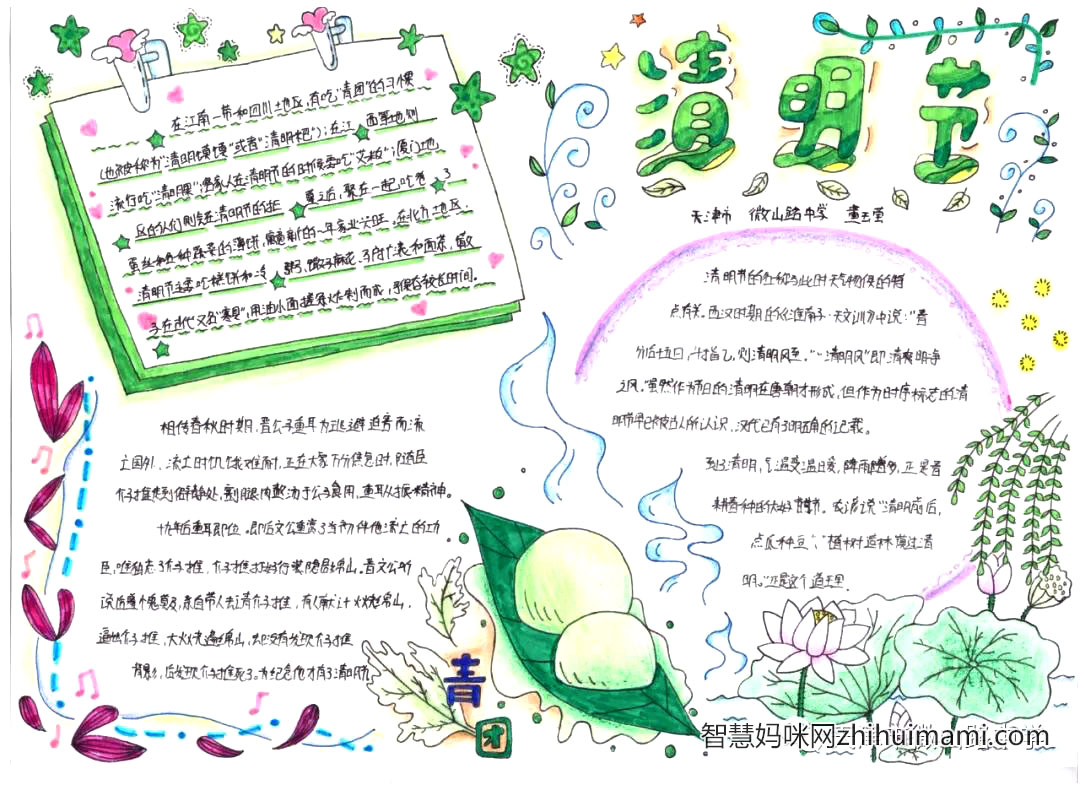 清明节
天津市 微山路中学 董玉莹
在江南一带和四川地区,有吃"青团"的习惯
(也被称为"清明馍馍"或者"清明粑");在江西等地则
流行吃"清明粿";客家人在清明节的时候要吃"艾粄";厦门地
区的人们则会在清明节的祭奠之后,聚在一起,吃卷了
蛋丝和各种蔬菜的薄饼,寓意新的一年家业兴旺,在北方地区,
清明节主要吃糕饼和冷粥,馓子麻花
子在古代又名"寒具",用油水面搓条炸制而成,可保存较长时间。
清明节的名称与此时天气物候的特
点有关。西汉时期的《淮南子·天文训》中说:"春
分后十五日,斗指乙,则清明风至。""清明风"即清爽明净
之风。虽然作为节日的清明在唐朝才形成,但作为时序标志的清
明节早已被古人所认识,汉代已有了明确的记载。
到了清明,气温变温暖,降雨增多,正是春
耕春种的大好时节。农谚说"清明前后,
点瓜种豆"、"植树造林,莫过清
明。"正是这个道理。
相传春秋时期,晋公子重耳为逃避迫害而流
亡国外,流亡时饥饿难耐,正在大家万分焦急时,随臣
介子推走到僻静处,割腿肉煮汤于公子食用,重耳从振精神。
十九年后重耳即位。即后文公重赏了当初伴他流亡的功
臣,唯独忘了介子推,介子推打好行装隐居绵山。晋文公听
说后羞愧莫及,亲自带人去请介子推,有人献计火烧绵山,
逼出介子推,大火烧遍绵山,却没有发现介子推
身影,后发现介子推死了。为纪念他才有了清明节
青
团
智慧妈咪网zhihuimami.com